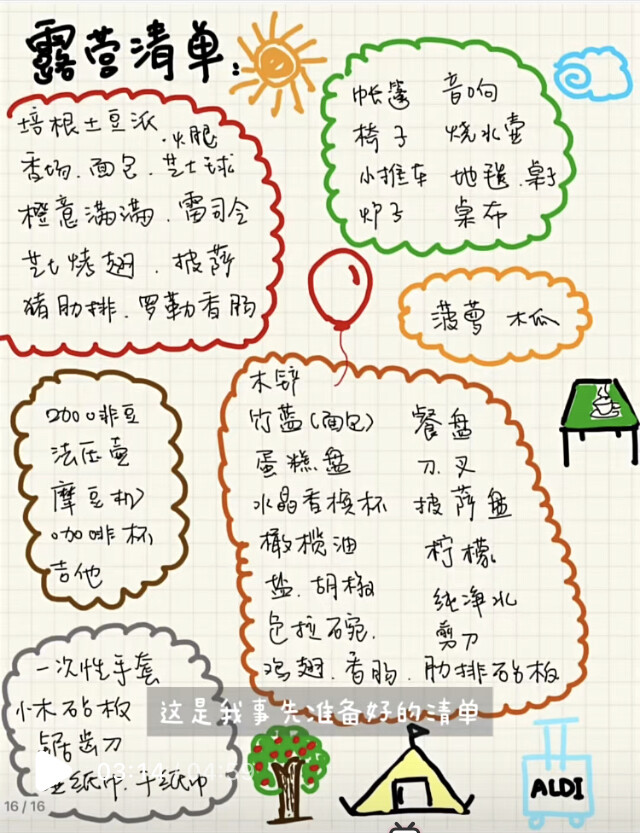 露营清单:
培根土豆派.火腿
香肠.面包.芝士球
橙意满满.雷司令
芝士烤翅.披萨
猪肋排.罗勒香肠
帐篷 音响
椅子 烧水壶
小推车 地毯.桌子
炉子 桌布
菠萝 木瓜
咖啡豆
法压壶
摩豆机
咖啡杯
吉他
木铲
竹蓝(面包) 餐盘
蛋糕盘 刀.叉
水晶香槟杯 披萨盘
橄榄油 柠檬
盐.胡椒 纯净水
色拉碗. 剪刀
鸡翅.香肠.肋排砧板
一次性手套
小木砧板
锯齿刀
湿纸巾.干纸巾
这是我事先准备好的清单
03:14 / 04:59
16 / 16
ALDI